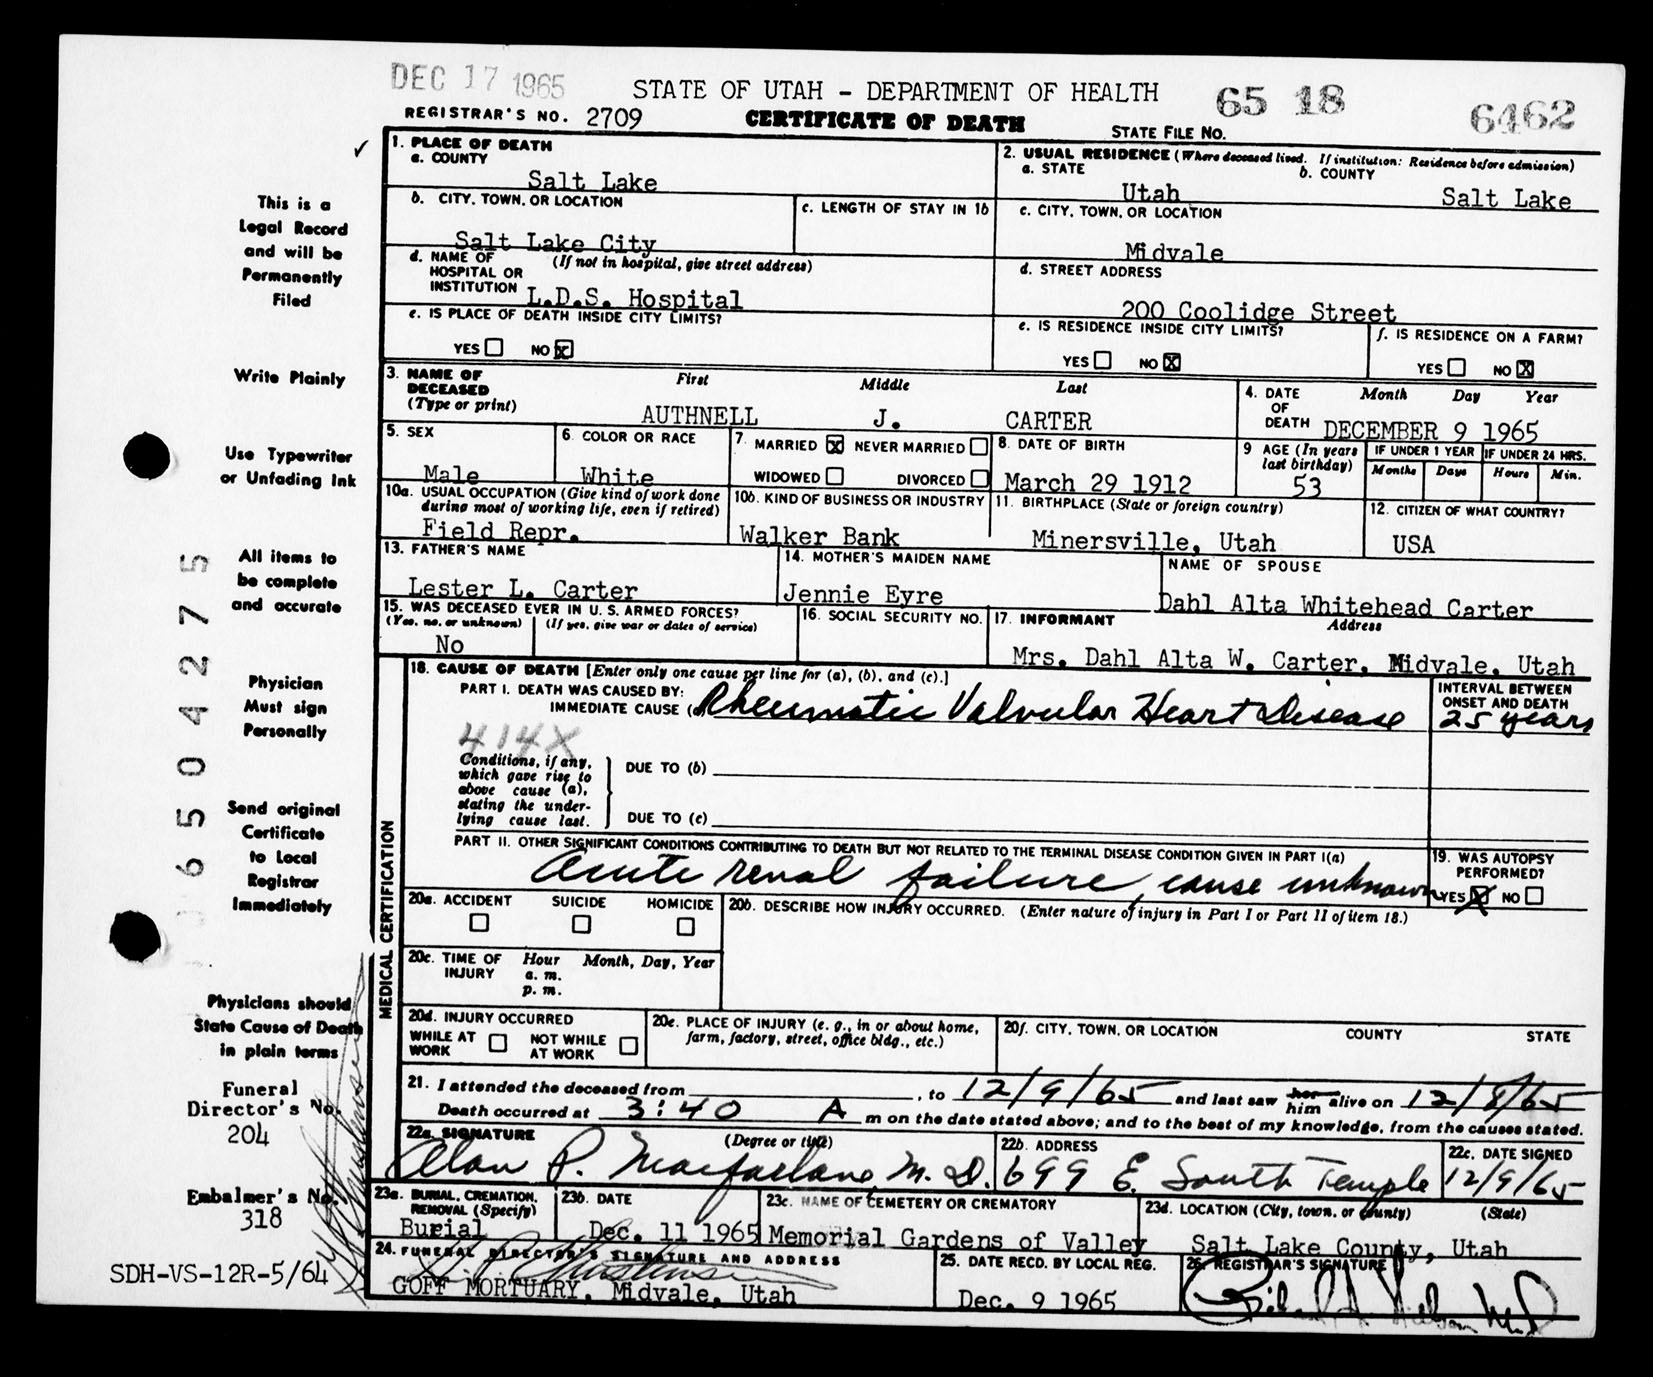 DEC 17 1965
STATE OF UTAH - DEPARTMENT OF HEALTH
65 18
6462
REGISTRAR'S NO. 2709
CERTIFICATE OF DEATH
STATE FILE NO.
✓
This is a
Legal Record
and will be
Permanently
Filed
Write Plainly
Use Typewriter
or Unfading Ink
All items to
be complete
and accurate
Physician
Must sign
Personally
Send original
Certificate
to Local
Registrar
Immediately
Physicians should
State Cause of Death
in plain terms
Funeral
Director's No.
204
Embalmer's No.
318
SDH-VS-12R-5/64
650427 5
1. PLACE OF DEATH
a. COUNTY
Salt Lake
2. USUAL RESIDENCE (Where deceased lived. If institution: Residence before admission)
a. STATE
Utah
b. COUNTY
Salt Lake
b. CITY, TOWN, OR LOCATION
Salt Lake City
c. LENGTH OF STAY IN 1b
c. CITY, TOWN, OR LOCATION
Midvale
d. NAME OF HOSPITAL OR INSTITUTION
(If not in hospital, give street address)
L.D.S. Hospital
d. STREET ADDRESS
200 Coolidge Street
e. IS PLACE OF DEATH INSIDE CITY LIMITS?
YES NO X
e. IS RESIDENCE INSIDE CITY LIMITS?
YES NO X
f. IS RESIDENCE ON A FARM?
YES NO X
3. NAME OF DECEASED (Type or print)
First Middle Last
AUTHNELL J. CARTER
4. DATE OF DEATH
Month Day Year
DECEMBER 9 1965
5. SEX
Male
6. COLOR OR RACE
White
7. MARRIED X NEVER MARRIED
WIDOWED DIVORCED
8. DATE OF BIRTH
March 29 1912
9 AGE (In years last birthday)
53
IF UNDER 1 YEAR
Months Days
IF UNDER 24 HRS.
Hours Min.
10a. USUAL OCCUPATION (Give kind of work done
during most of working life, even if retired)
Field Repr.
10b. KIND OF BUSINESS OR INDUSTRY
Walker Bank
11. BIRTHPLACE (State or foreign country)
Minersville, Utah
12. CITIZEN OF WHAT COUNTRY?
USA
13. FATHER'S NAME
Lester L. Carter
14. MOTHER'S MAIDEN NAME
Jennie Eyre
NAME OF SPOUSE
Dahl Alta Whitehead Carter
15. WAS DECEASED EVER IN U. S. ARMED FORCES?
(Yes, no, or unknown) (If yes, give war or dates of service)
No
16. SOCIAL SECURITY NO.
17. INFORMANT Address
Mrs. Dahl Alta W. Carter, Midvale, Utah
MEDICAL CERTIFICATION
18. CAUSE OF DEATH [Enter only one cause per line for (a), (b), and (c).]
PART I. DEATH WAS CAUSED BY:
IMMEDIATE CAUSE (a) Rheumatic Valvular Heart Disease
INTERVAL BETWEEN
ONSET AND DEATH
25 years
414X
Conditions, if any,
which gave rise to
above cause (a),
stating the under-
lying cause last.
DUE TO (b)
DUE TO (c)
PART II. OTHER SIGNIFICANT CONDITIONS CONTRIBUTING TO DEATH BUT NOT RELATED TO THE TERMINAL DISEASE CONDITION GIVEN IN PART I(a)
Acute renal failure, cause unknown
19. WAS AUTOPSY PERFORMED?
YES X NO
20a. ACCIDENT SUICIDE HOMICIDE
20b. DESCRIBE HOW INJURY OCCURRED. (Enter nature of injury in Part I or Part II of item 18.)
20c. TIME OF INJURY
Hour Month, Day, Year
a. m.
p. m.
20d. INJURY OCCURRED
WHILE AT WORK NOT WHILE AT WORK
20e. PLACE OF INJURY (e. g., in or about home,
farm, factory, street, office bldg., etc.)
20f. CITY, TOWN, OR LOCATION COUNTY STATE
21. I attended the deceased from , to 12/9/65 and last saw her him alive on 12/8/65
Death occurred at 3:40 A m on the date stated above; and to the best of my knowledge, from the causes stated.
22a. SIGNATURE (Degree or title)
Alan P. Macfarlane, M.D.
22b. ADDRESS
699 E. South Temple
22c. DATE SIGNED
12/9/65
23a. BURIAL, CREMATION, REMOVAL (Specify)
Burial
23b. DATE
Dec. 11 1965
23c. NAME OF CEMETERY OR CREMATORY
Memorial Gardens of Valley
23d. LOCATION (City, town, or county) (State)
Salt Lake County, Utah
24. FUNERAL DIRECTOR'S SIGNATURE AND ADDRESS
GOFF MORTUARY, Midvale, Utah
25. DATE RECD. BY LOCAL REG.
Dec. 9 1965
26. REGISTRAR'S SIGNATURE